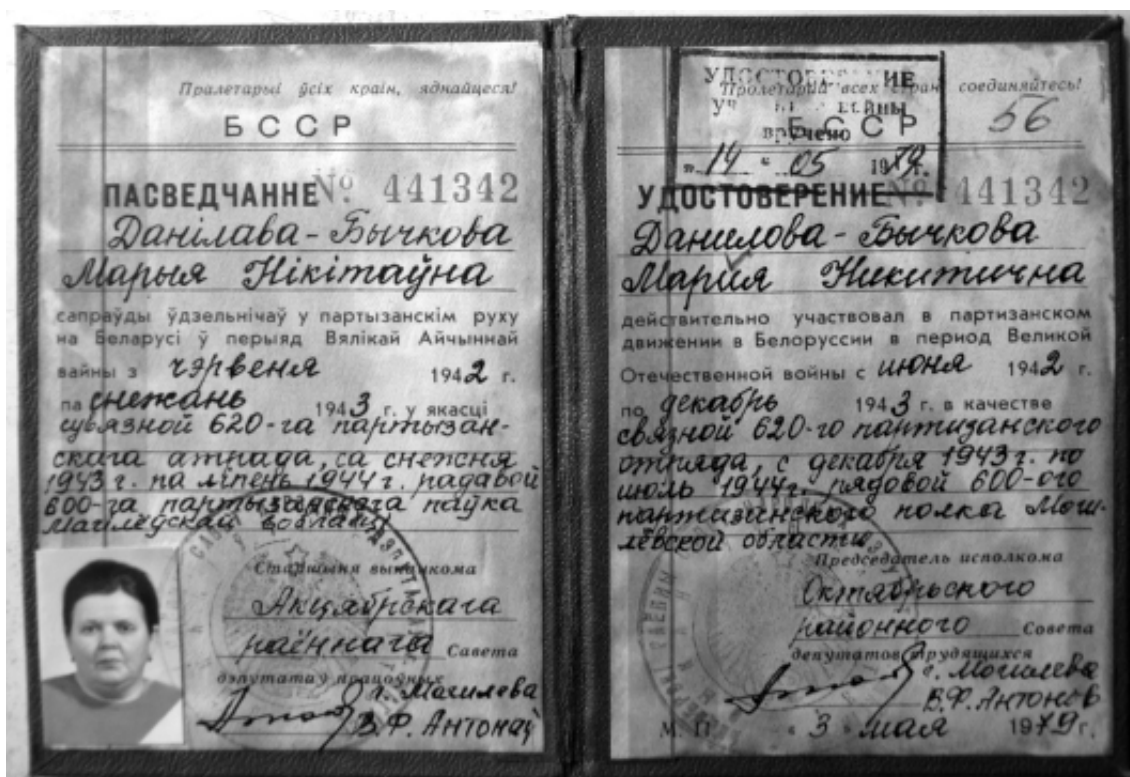 Пралетарыі ўсіх краін, яднайцеся!
БССР
ПАСВЕДЧАННЕ № 441342
Данілава-Бычкова
Марыя Нікітаўна
сапраўды ўдзельнічаў у партызанскім руху
на Беларусі ў перыяд Вялікай Айчыннай
вайны з чэрвеня 1942 г.
па снежань 1943 г. у якасці
сувязной 620-га партызан-
скага атрада, са снежня
1943 г. па ліпень 1944 г. радавой
600-га партызанскага палка
Магілёўскай вобласці
Старшыня выканкома
Акцябрскага
раённага Савета
дэпутатаў працоўных
г. Магилева
В.Ф. Антонаў
Пролетарии всех стран, соединяйтесь!
УДОСТОВЕРЕНИЕ
войны
вручено
"14" 05 1979 г.
БССР
56
УДОСТОВЕРЕНИЕ № 441342
Данилова-Бычкова
Мария Никитична
действительно участвовал в партизанском
движении в Белоруссии в период Великой
Отечественной войны с июня 1942 г.
по декабрь 1943 г. в качестве
связной 620-го партизанского
отряда, с декабря 1943 г. по
июль 1944 г. рядовой 600-ого
партизанского полка Моги-
лёвской области
Председатель исполкома
Октябрьского
районного Совета
депутатов трудящихся
г. Могилева
В.Ф. Антонов
М. П. «3» мая 1979 г.